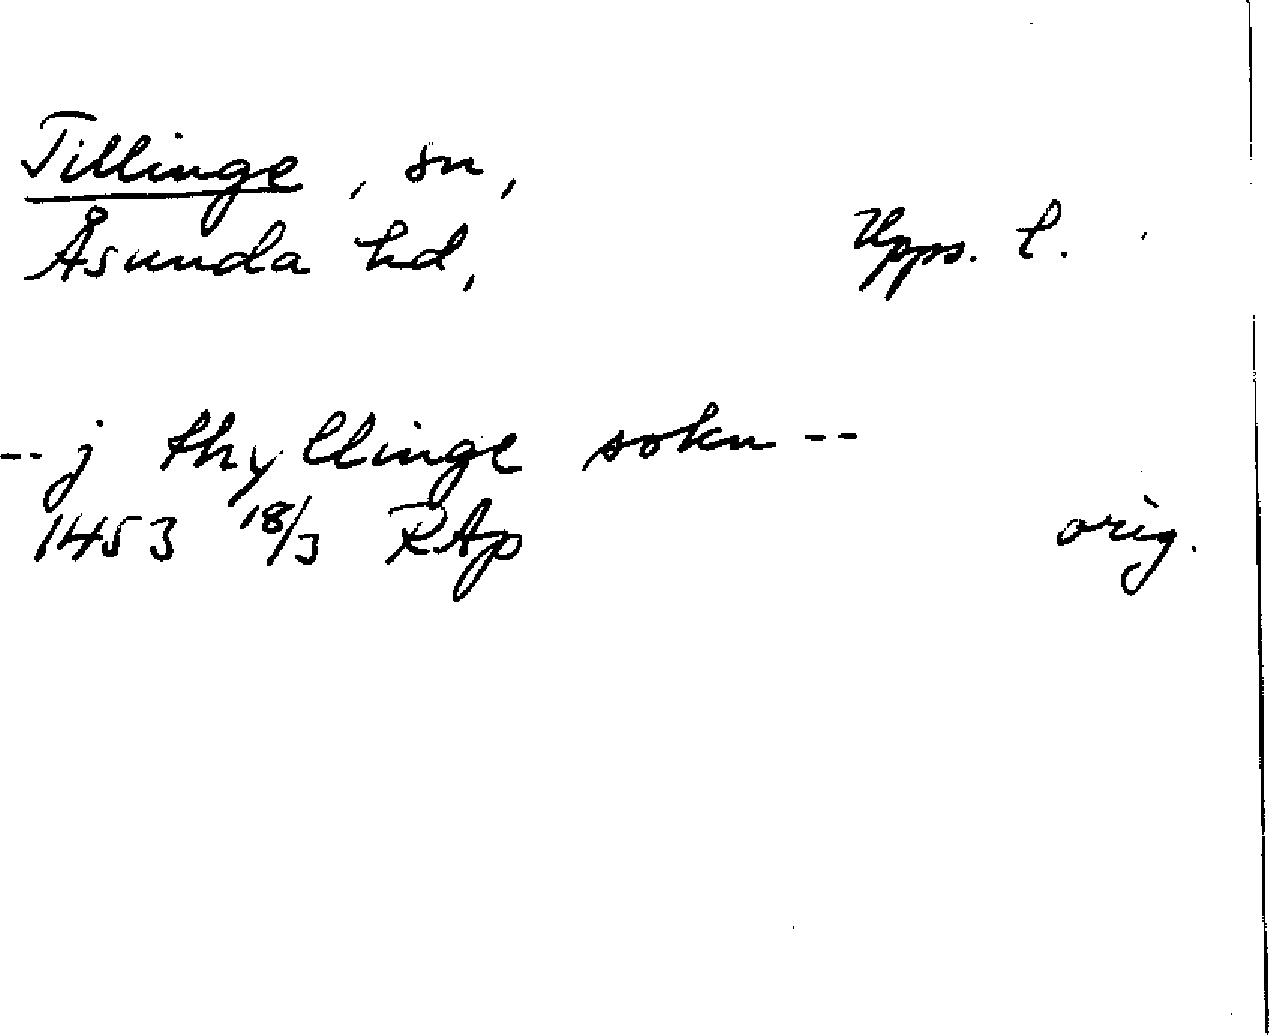 Tillinge, sn,
Åsunda hd, Upps. l.
-- j thyllinge sokn --
1453 18/3 RAp orig.